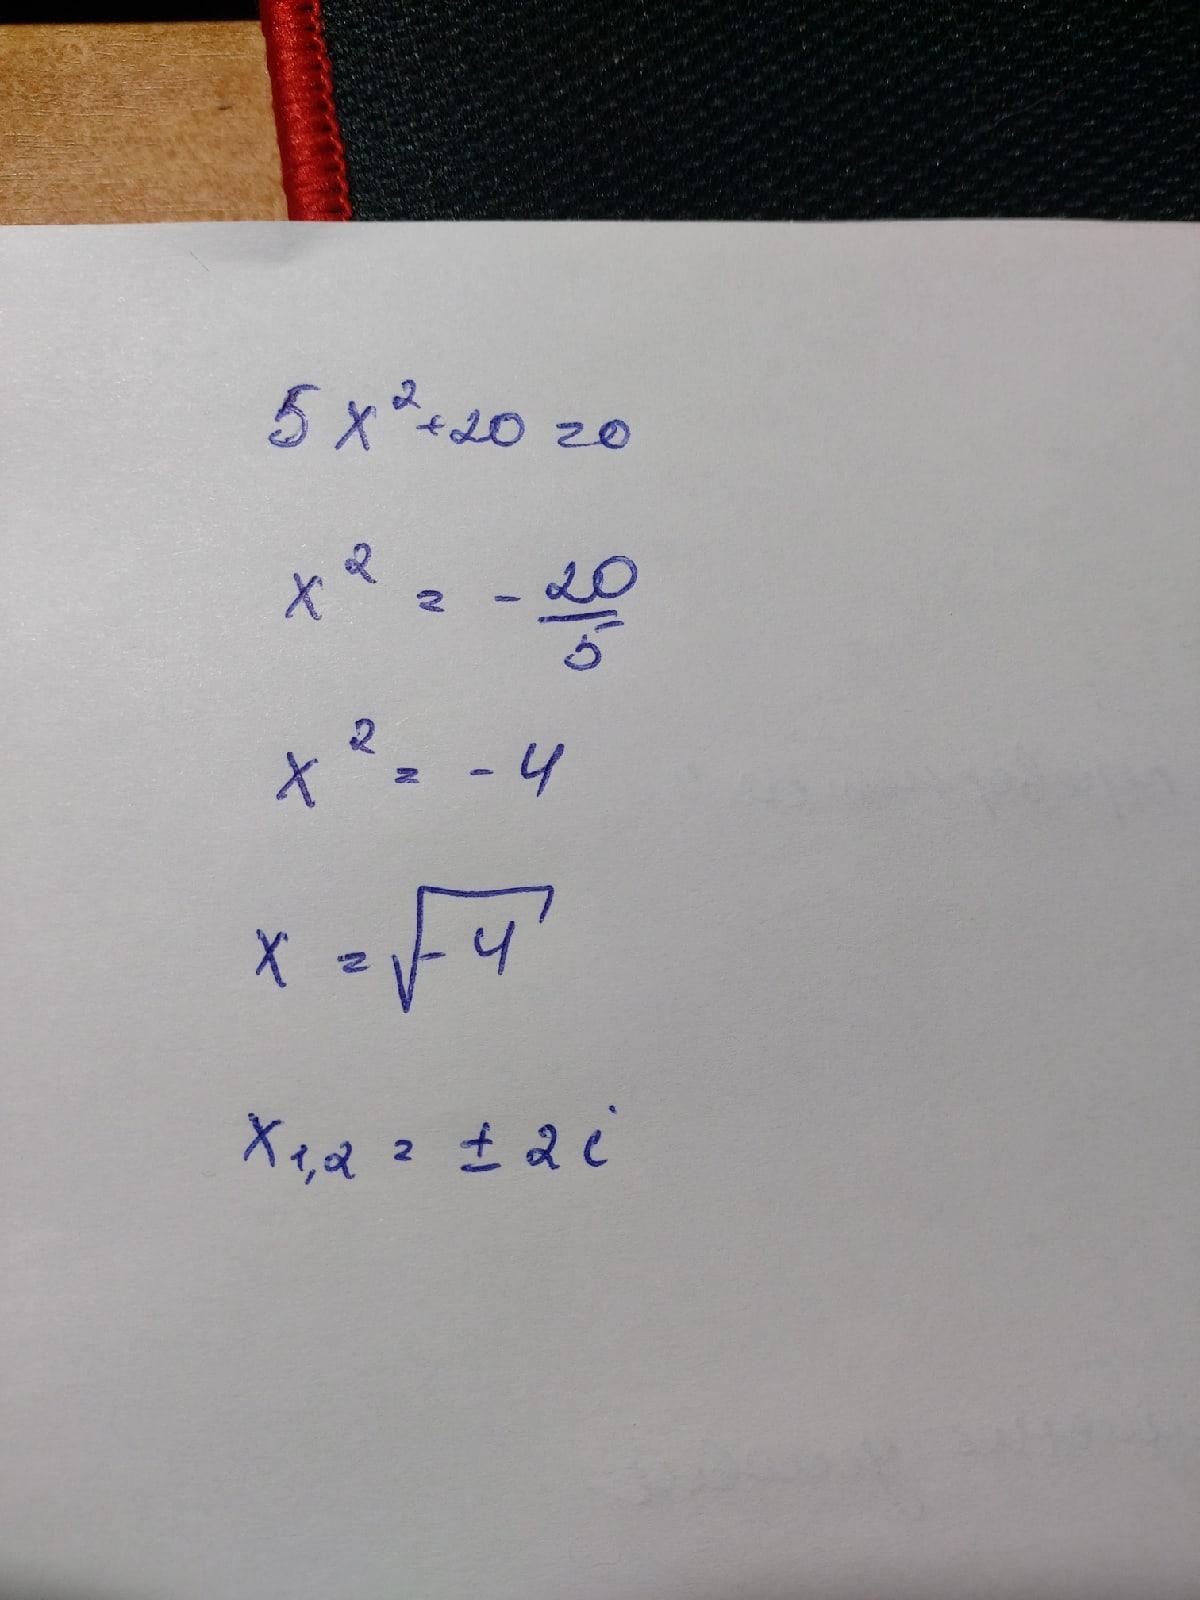 5x²+20=0
x² = -20/5
x² = -4
x = √-4
x₁,₂ = ± 2i